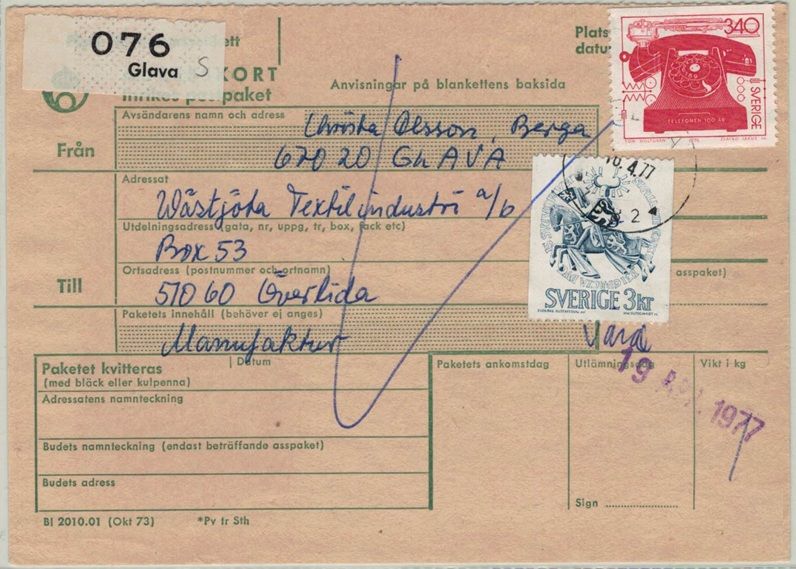 076
Glava S
KORT
Inrikes postpaket
Anvisningar på blankettens baksida
Plats
datu
340
SVERIGE
TELEFONEN 100 ÅR
Från
Avsändarens namn och adress
Olsson, Berga
67020 GLAVA
16.4.77
2
Till
Adressat
Wästgöta Textilindustri a/b
Utdelningsadress (gata, nr, uppg, tr, box, fack etc)
Box 53
Ortsadress (postnummer och ortnamn)
51060 Överlida
asspaket)
SVERIGE 3kr
Paketets innehåll (behöver ej anges)
Manufaktur
Värde
Paketet kvitteras
(med bläck eller kulpenna)
Datum
Adressatens namnteckning
Budets namnteckning (endast beträffande asspaket)
Budets adress
Paketets ankomstdag
Utlämningsdag
Vikt i kg
19 APR. 1977
1
Sign
Bl 2010.01 (Okt 73)
*Pv tr Sth